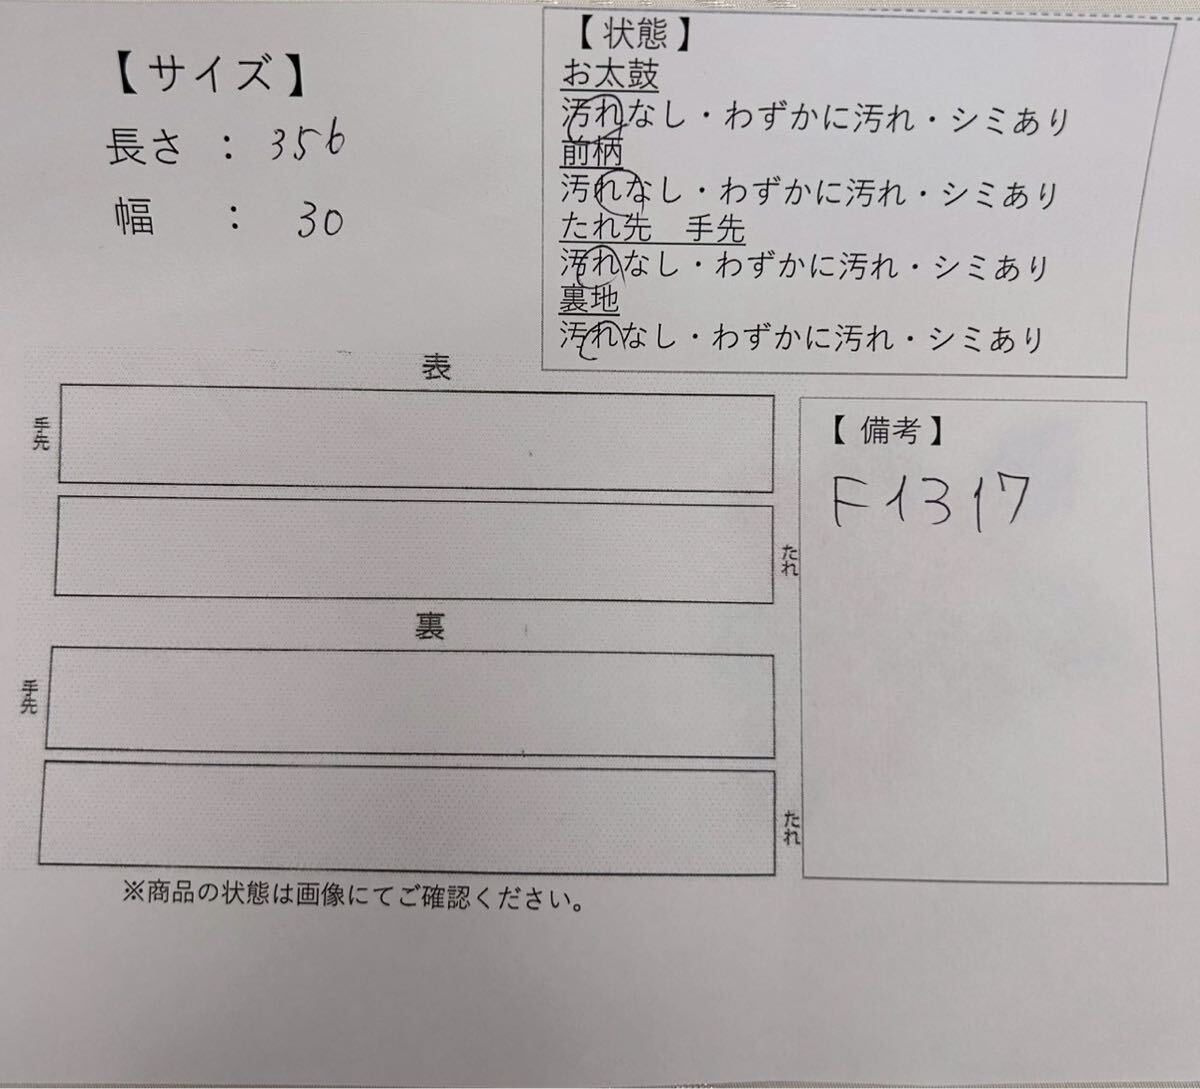 【 サイズ 】
長さ : 356
幅 : 30
【 状態 】
お太鼓
汚れなし・わずかに汚れ・シミあり
前柄
汚れなし・わずかに汚れ・シミあり
たれ先 手先
汚れなし・わずかに汚れ・シミあり
裏地
汚れなし・わずかに汚れ・シミあり
表
手先
たれ
裏
手先
たれ
※商品の状態は画像にてご確認ください。
【 備考 】
F1317